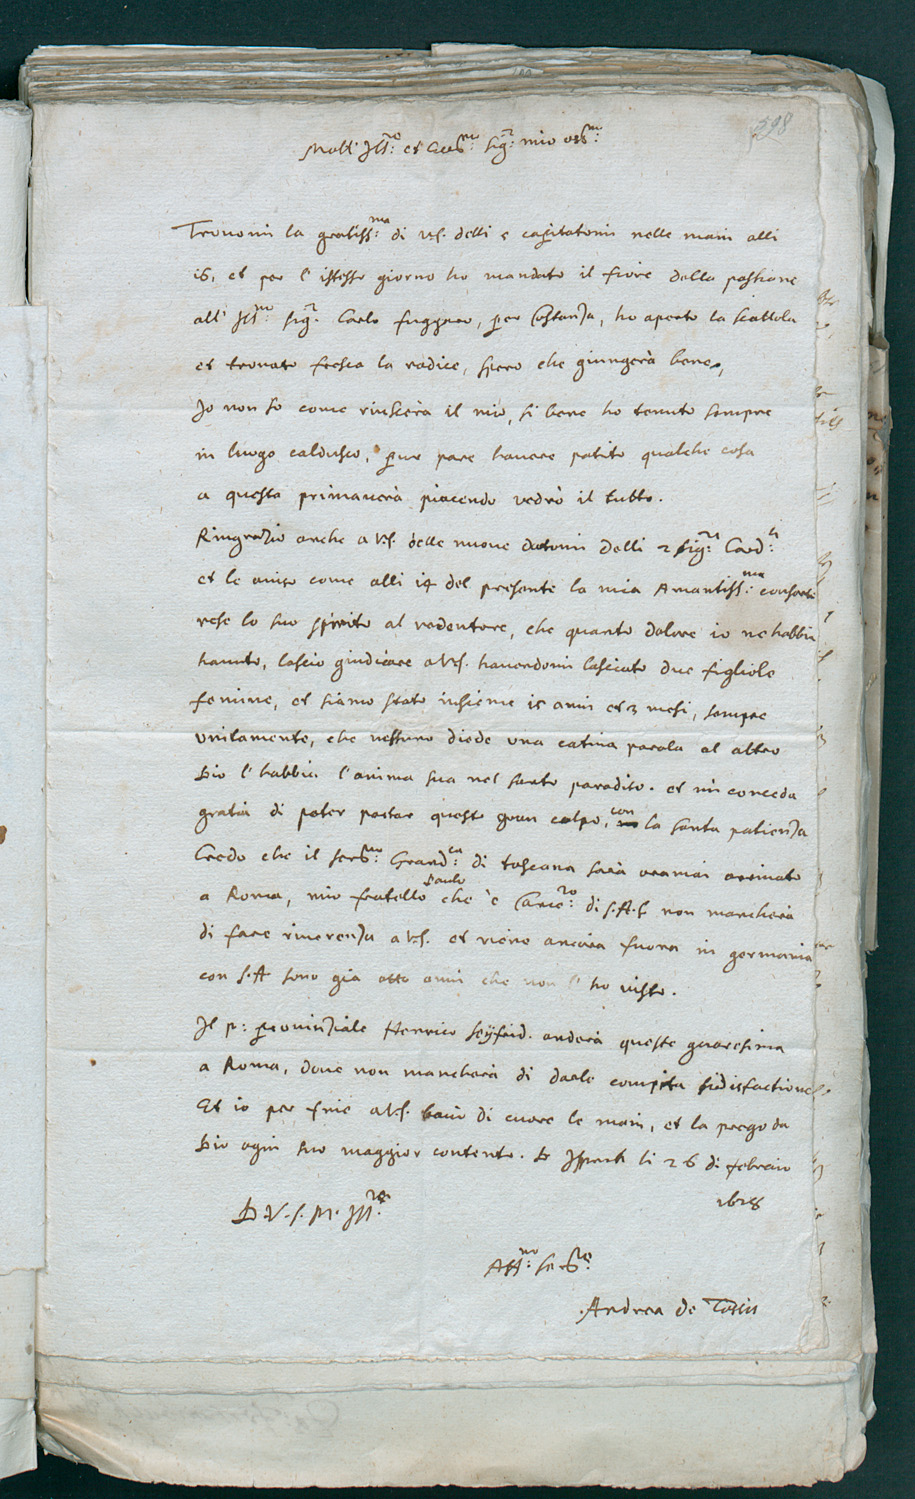 598
Moll' Ill.re et Cols.mo Sig.r mio oss.mo
Trovomi la gratiss.ma di V.S. delli 5 capitatomi nelle mani alli
16, et per l'istesso giorno ho mandato il fiore della passione
all' Ill.mo Sig.r Carlo fuggero, per Costanza, ho aperto la scattola
et trovato fresca la radice, spero che giungerà bene,
Io non so come riuscera il mio, si bene ho tenuto sempre
in luogo calduscio, pur pare havere patito qualche cosa
a questa primauerà piacendo vedrò il tutto.
Ringrazio anche a V.S. delle nuoue datomi delli 2 Sig.ri Card.li
et le auiso come alli 14 del presente la mia Amantiss.ma consorte
rese lo suo spirito al redentore, che quanto dolore io ne habbia
hauuto, lascio giudicare a V.S. hauendomi lasciato due figliole
femine, et siamo stato insieme 15 anni et 3 mesi, sempre
vnitamente, che nessuno diede vna catiua parola al altro
Dio l'habbia l'anima sua nel santo paradiso. et mi conceda
gratia di poter portar questo gran colpo, con la santa patienza
Credo che il ser.mo Grand.ca di toscana sarà oramai ariuato
a Roma, mio fratello Paulo che è Camer.ro di S.A.S non mancherà
di fare riuerenza a V.S. et viene ancora fuora in germania
con S.A sono gia otto anni che non l'ho visto.
Il p: prouinziale Henrico Seyfrid. anderà questa quaresima
a Roma, doue non mancherà di darle compita sodisfactione
Et io per fine a V.S. bacio di cuore le mani, et la prego da
Dio ogni suo maggior contento. Di Ispruk li 26 di febraio
1628
D V.S. M. Ill.re
Aff.mo Ser.re
Andrea de Tassis